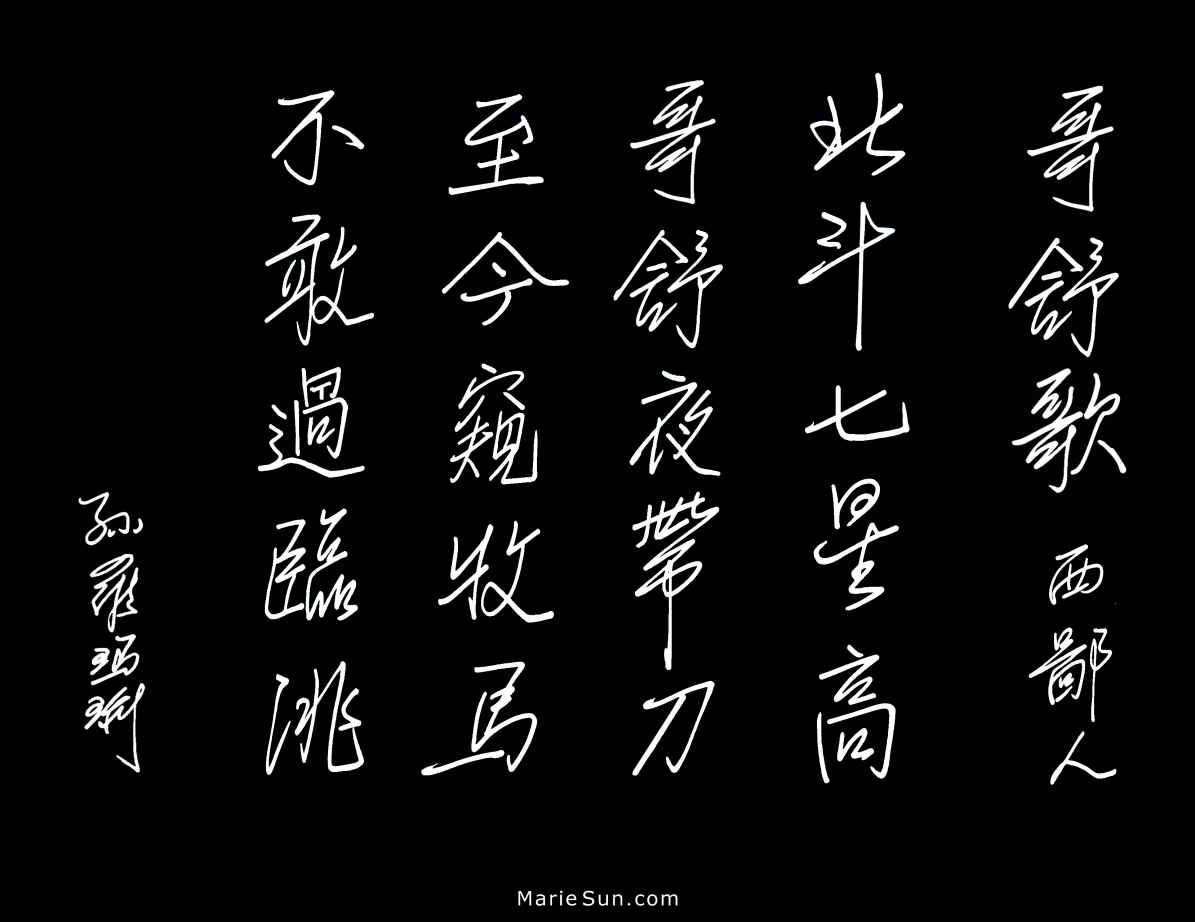 哥舒歌 西鄙人
北斗七星高
哥舒夜帶刀
至今窺牧馬
不敢過臨洮
孫羅瑪琍
MarieSun.com